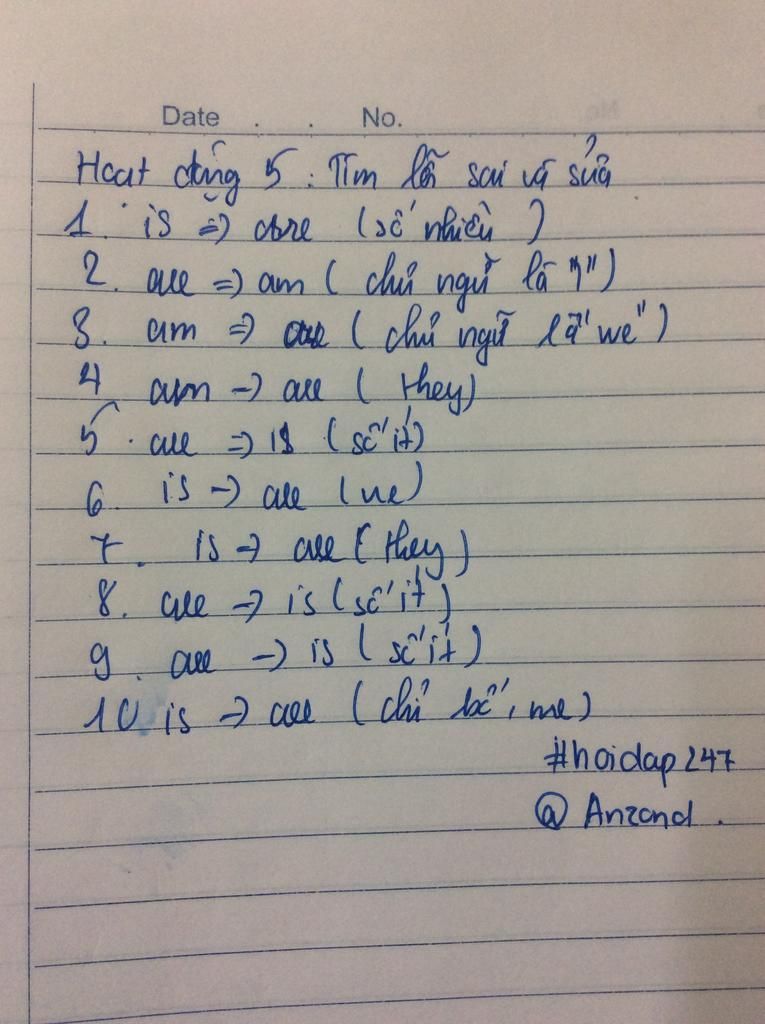 Date . . No.
Hoạt động 5 : Tìm lỗi sai và sửa
1. is => are (số nhiều)
2. are => am ( chủ ngữ là "I")
3. am => are ( chủ ngữ là "we")
4 am -> are ( they)
5. are => is (số ít)
6. is -> are (we)
7. is -> are (they)
8. are -> is (số ít)
9. are -> is (số ít)
10 is -> are (chỉ bố, mẹ)
#hoidap247
@ Anzond.